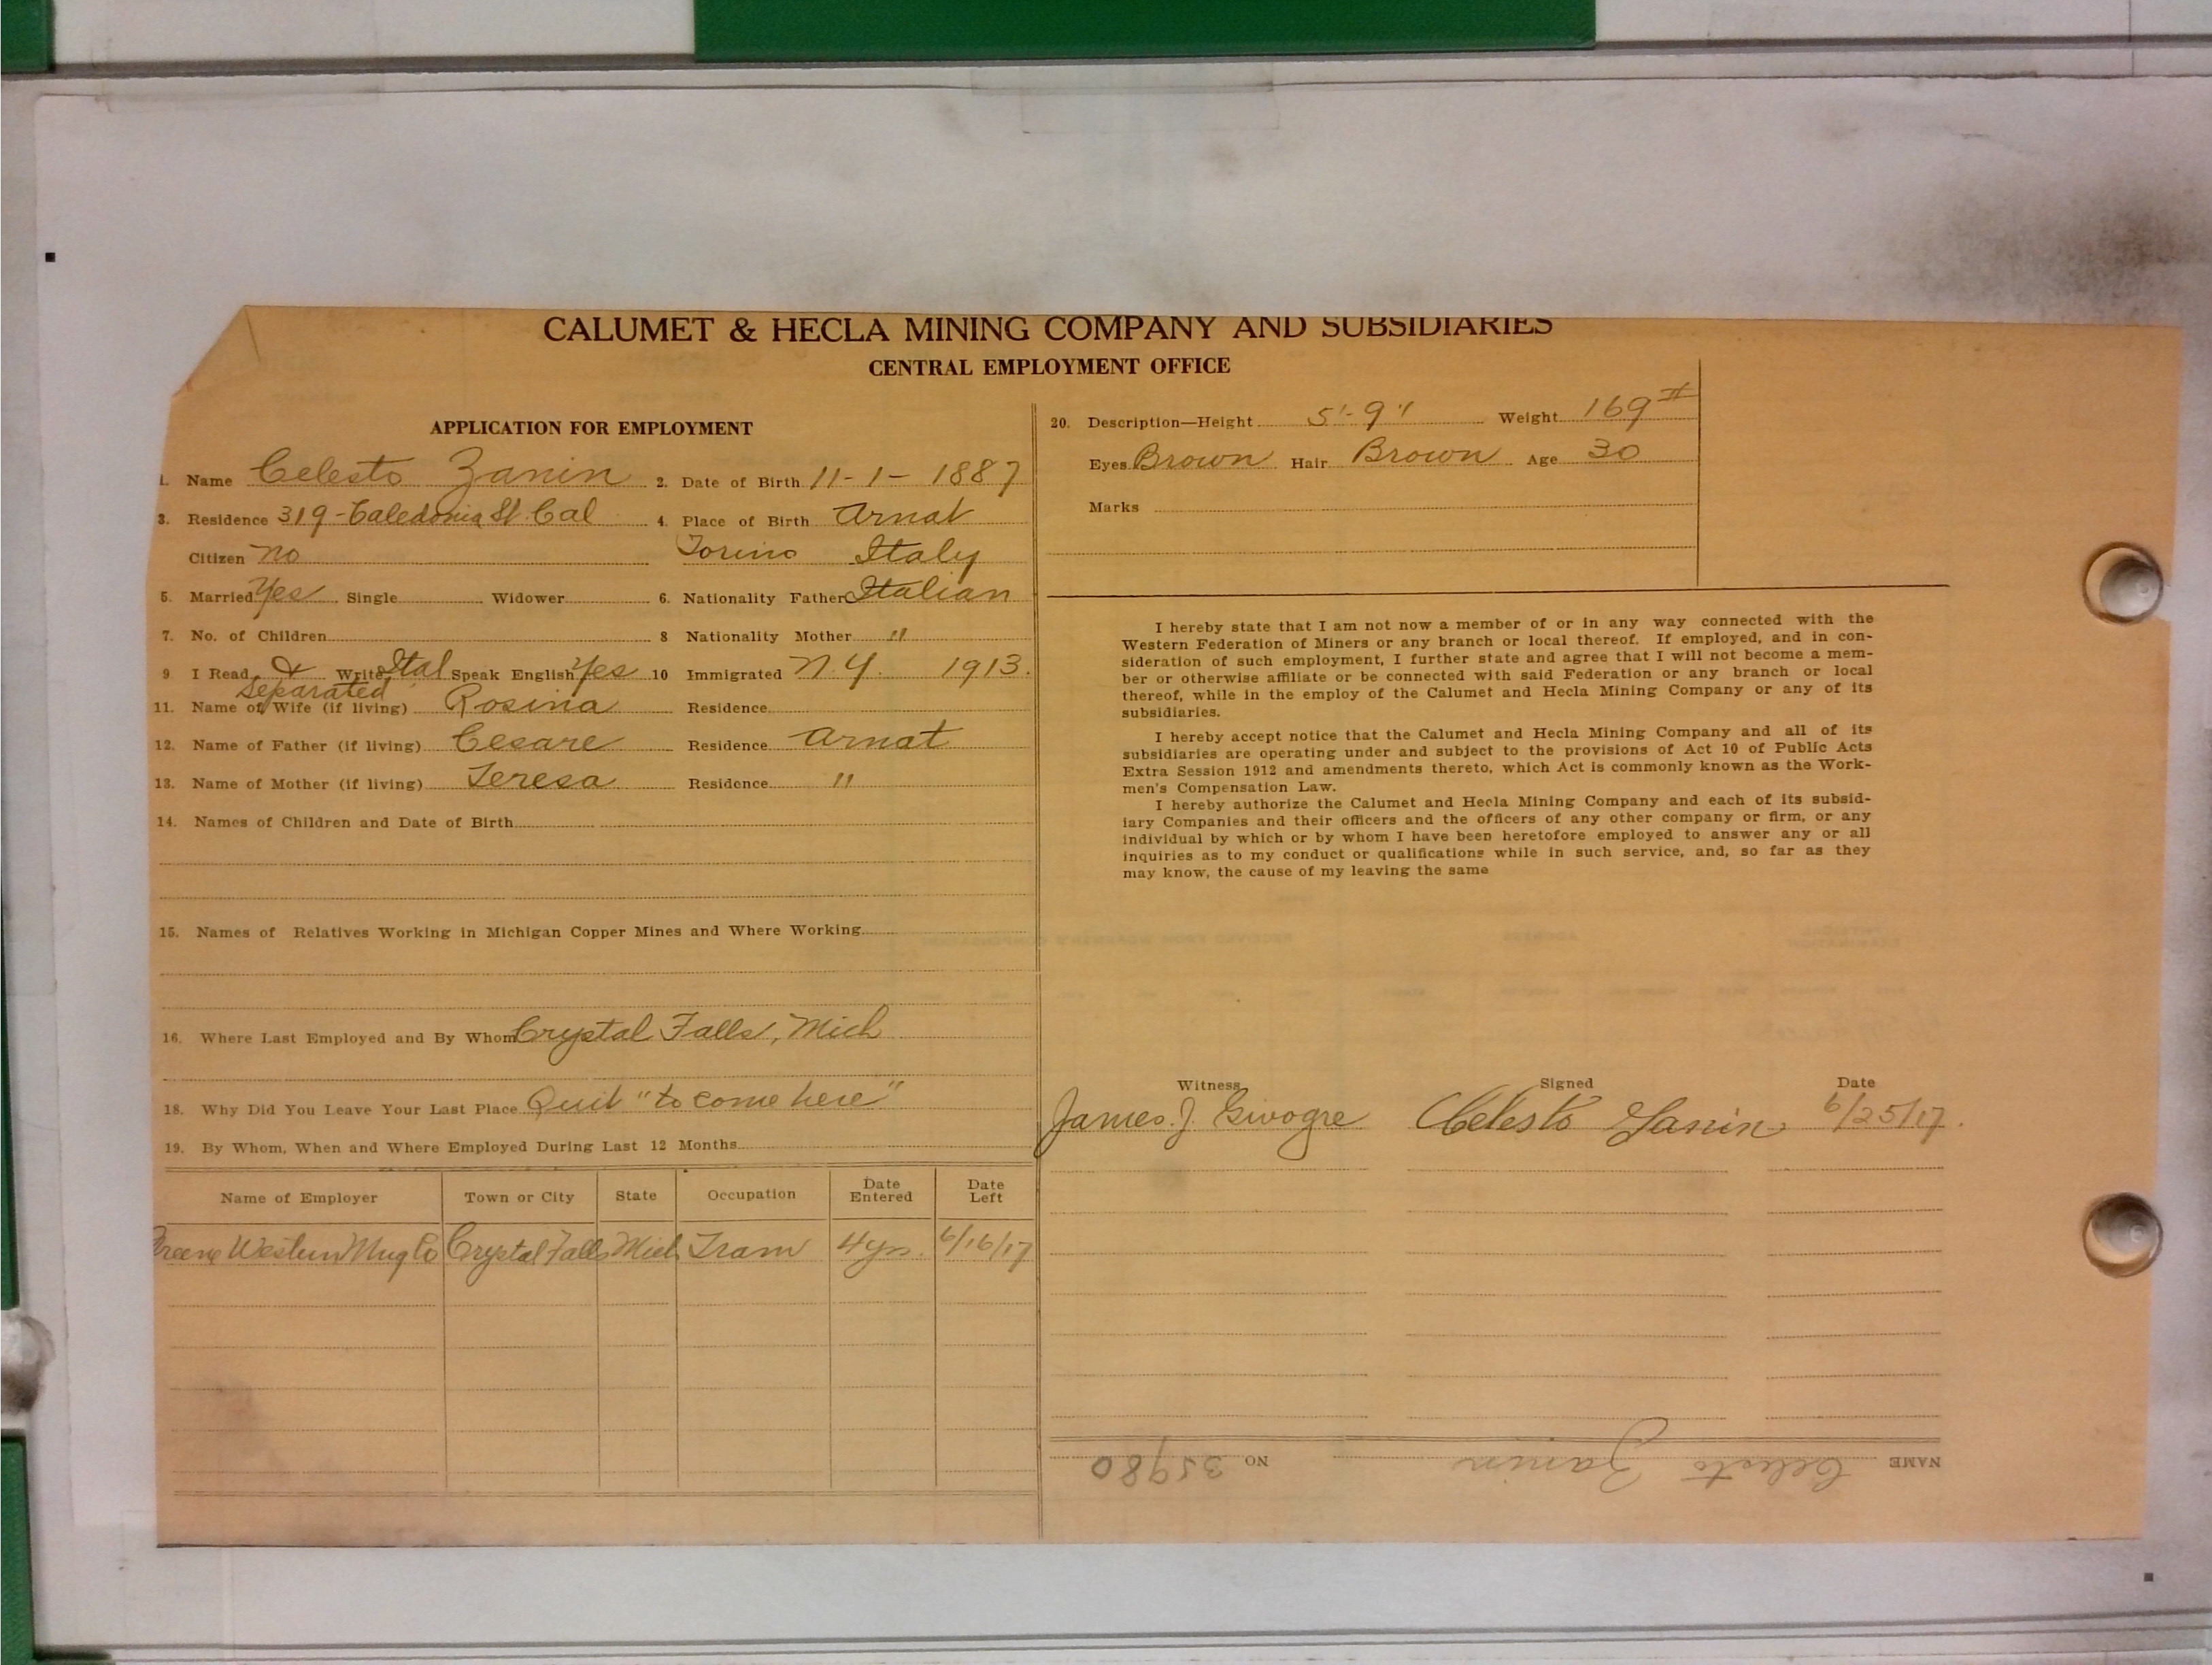 CALUMET & HECLA MINING COMPANY AND SUBSIDIARIES
CENTRAL EMPLOYMENT OFFICE
APPLICATION FOR EMPLOYMENT
1. Name Celesto Zanin 2. Date of Birth 11-1-1887
3. Residence 319-Caledonia St. Cal 4. Place of Birth Arnat
Citizen no Torino Italy
5. Married Yes Single Widower 6. Nationality Father Italian
7. No. of Children 8 Nationality Mother "
9 I Read & Write Ital Speak English Yes 10 Immigrated N.Y. 1913.
separated
11. Name of Wife (if living) Rosina Residence
12. Name of Father (if living) Cesare Residence Arnat
13. Name of Mother (if living) Teresa Residence "
14. Names of Children and Date of Birth
15. Names of Relatives Working in Michigan Copper Mines and Where Working
16. Where Last Employed and By Whom Crystal Falls, Mich
18. Why Did You Leave Your Last Place Quit "to come here"
19. By Whom, When and Where Employed During Last 12 Months
Name of Employer Town or City State Occupation Date Entered Date Left
Western Mng Co Crystal Falls Mich Tram 4 yrs. 6/16/17
20. Description—Height 5'-9" Weight 169#
Eyes Brown Hair Brown Age 30
Marks
I hereby state that I am not now a member of or in any way connected with the
Western Federation of Miners or any branch or local thereof. If employed, and in con-
sideration of such employment, I further state and agree that I will not become a mem-
ber or otherwise affiliate or be connected with said Federation or any branch or local
thereof, while in the employ of the Calumet and Hecla Mining Company or any of its
subsidiaries.
I hereby accept notice that the Calumet and Hecla Mining Company and all of its
subsidiaries are operating under and subject to the provisions of Act 10 of Public Acts
Extra Session 1912 and amendments thereto, which Act is commonly known as the Work-
men's Compensation Law.
I hereby authorize the Calumet and Hecla Mining Company and each of its subsid-
iary Companies and their officers and the officers of any other company or firm, or any
individual by which or by whom I have been heretofore employed to answer any or all
inquiries as to my conduct or qualifications while in such service, and, so far as they
may know, the cause of my leaving the same
Witness Signed Date
James. J. Celesto Zanin 6/25/17.
NAME Celesto Zanin NO 35980